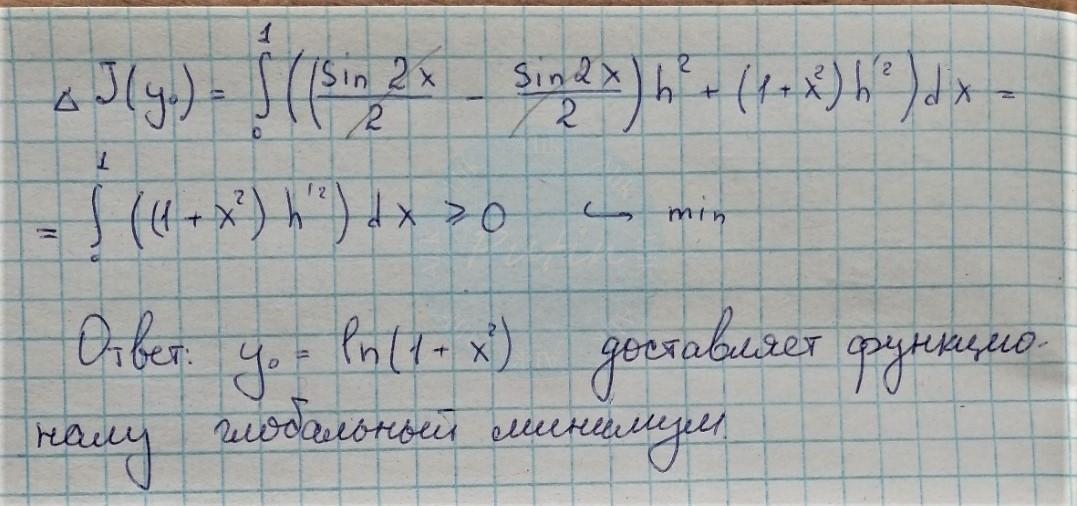 Δ J(y₀) = ∫₀¹ ((sin 2x/2 − sin 2x/2) h² + (1+x²) h'²) dx =
= ∫₀¹ ((1+x²) h'²) dx ≥ 0 ↪ min
Ответ: y₀ = ln(1+x²) доставляет функцио-
налу глобальный минимум.